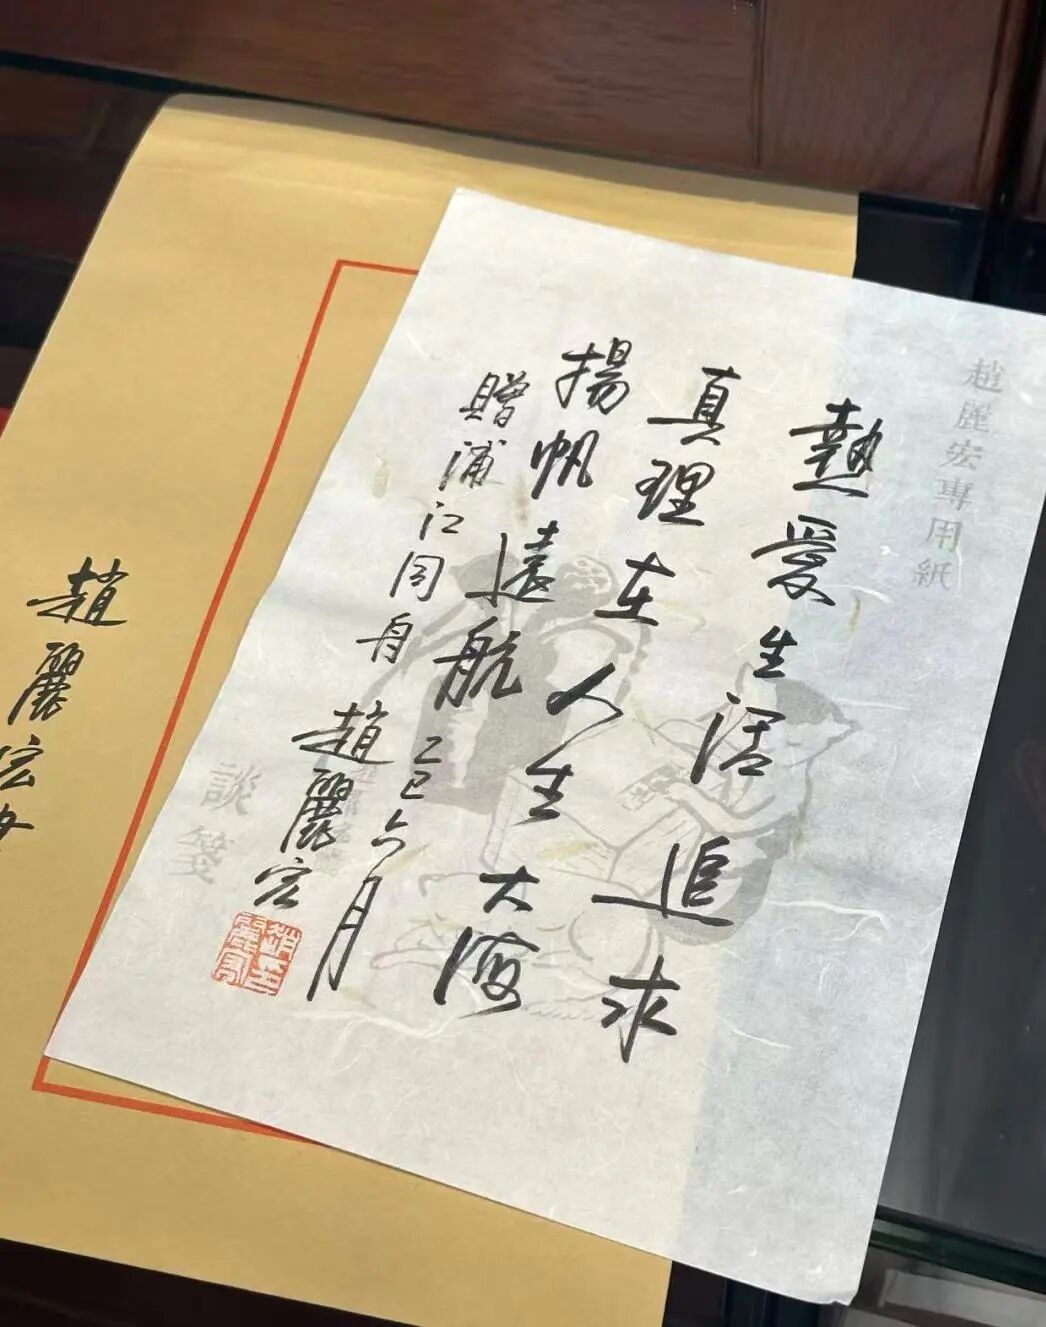 趙麗宏專用紙
熱愛生活 追求
真理 在人生大海
揚帆遠航
贈浦江同舟
乙巳六月
趙麗宏
談箋
趙麗宏